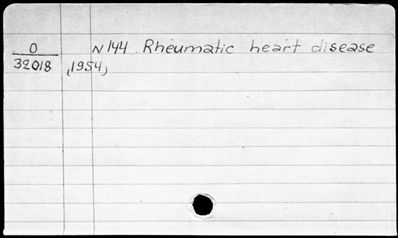 O N 144 Rheumatic heart disease
32018 (1954)